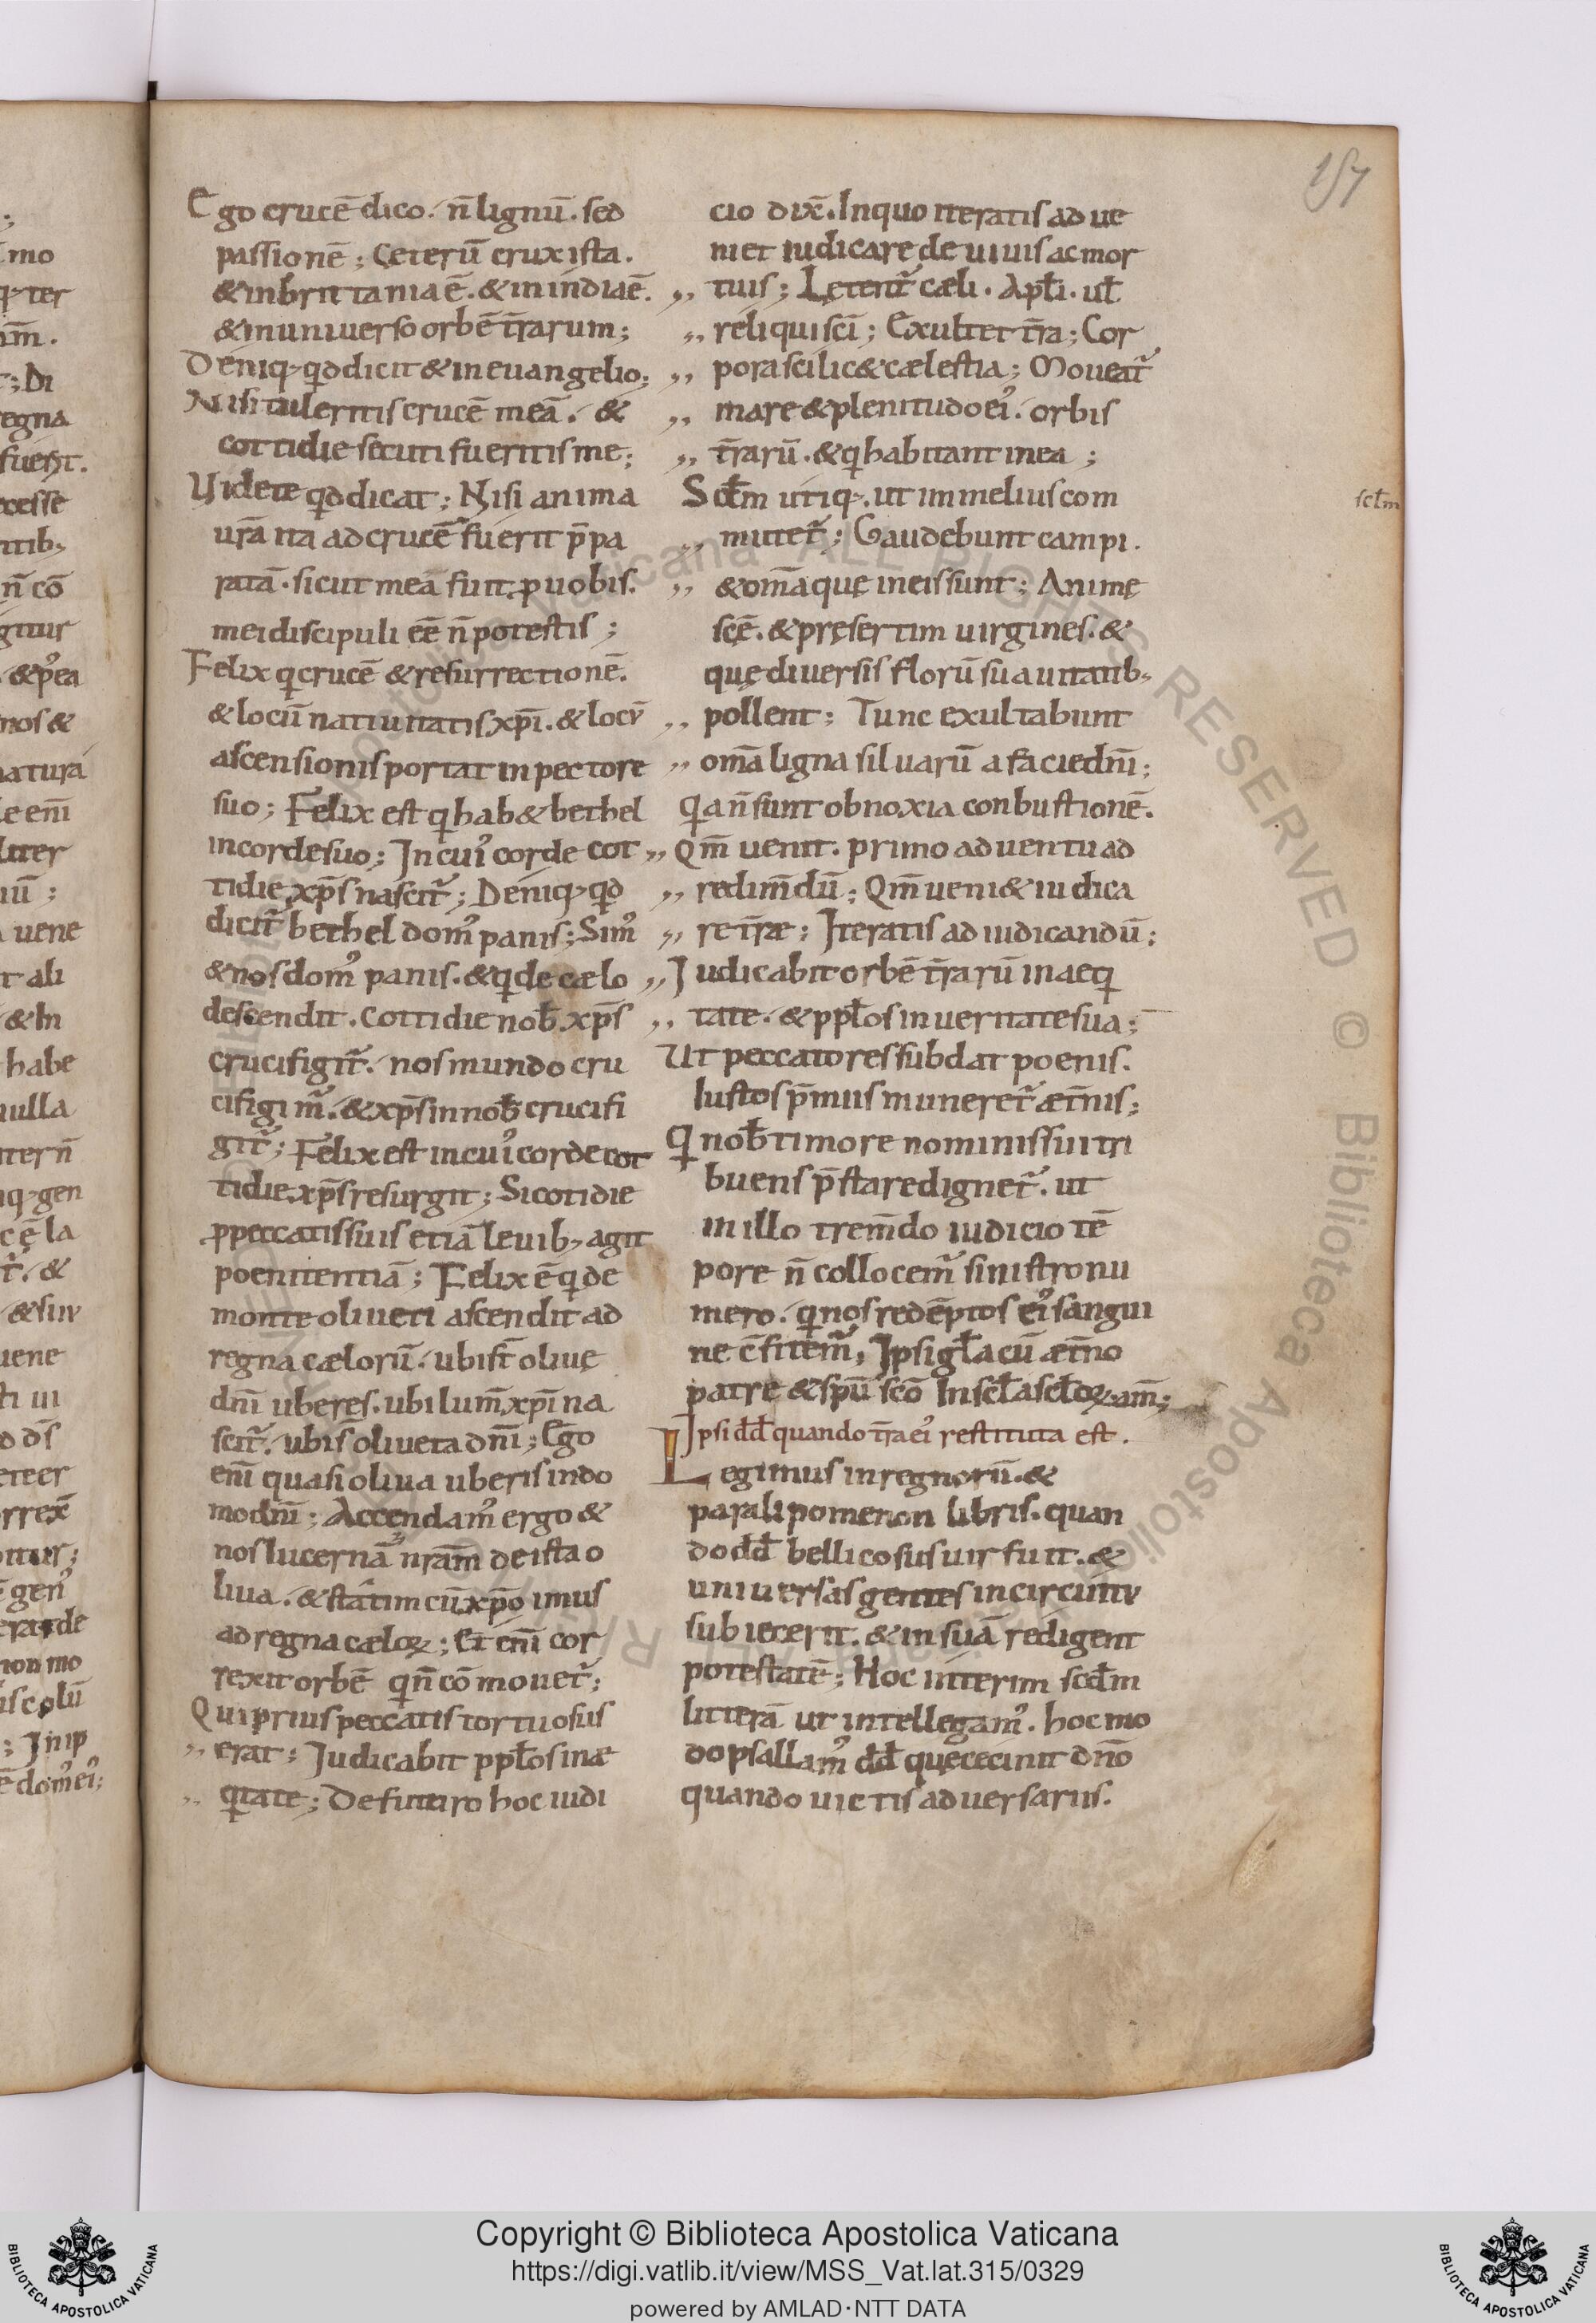 157
Ego crucē dico. n̄ lignū. sed
passionē; Ceterū crux ista.
& in brittania ē. & in india ē.
& in universo orbē t̄rarum;
Deniq; qd dicit & in euangelio;
Nisi tuleritis crucē meā. &
cottidie secuti fueritis me;
Uidete qd dicat; Nisi anima
urā ita ad crucē fuerit p̄pa
rata. sicut mea fuit p uobis.
mei discipuli eē n̄ potestis;
Felix q crucē & resurrectionē.
& locū natiuitatis xp̄i. & locū
ascensionis portat in pectore
suo; Felix est q hab& bethel
in corde suo; In cui' corde cot
tidie xp̄s nascit̄; Deniq; qd
dicit̄ bethel dom' panis; Sim'
& nos dom' panis. & q de cælo
descendit. Cottidie nob̄ xp̄s
crucifigit̄. nos mundo cru
cifigim̄. & xp̄s in nob̄ crucifi
git̄; Felix est in cui' corde cot
tidie xp̄s resurgit; Si cotidie
p peccatis suis etiā leuib; agit
poenitentiā; Felix ē q de
monte oliueti ascendit ad
regna cælorū. ubi st̄ oliuę
dn̄i uberes. ubi lum̄ xp̄i na
scit̄. ubi s̄ oliueta dn̄i; Ego
eni quasi oliua uberis in do
mo dn̄i; Accendam' ergo &
nos lucernā nr̄am de ista o
liua. & statim cū xp̄o imus
ad regna cæloꝝ; Et eni cor
rexit orbē q n̄ cōmouet̄;
Qui prius peccatis tortuosus
,, erat; Iudicabit ppl̄os in æ
,, qtate; De futuro hoc iudi
cio dix̄. In quo iteratis adue
niet iudicare de uiuis ac mor
,, tuis; Lętent̄ cæli. Apl̄i. ul̄
,, reliqui sc̄i; Exultet t̄ra; Cor
,, pora scilic& cælestia; Moueat̄
,, mare & plenitudo ei'. orbis
,, t̄rarū. & q habitant in ea;
Scl̄m utiq;. ut im melius com
,, mutet̄; Gaudebunt campi.
,, & om̄a quę in eis sunt; Animę
scē. & pręsertim uirgines. &
quę diuersis florū suauitatib;
,, pollent; Tunc exultabunt
,, om̄a ligna siluarū a facie dn̄i;
Q a n̄ sunt obnoxia conbustionē.
,, Qm̄ uenit. primo aduentu ad
,, redim̄dū; Qm̄ ueni& iudica
,, re t̄ræ; Iteratis ad iudicandū;
,, Iudicabit orbē t̄rarū in aeq
,, tate. & ppl̄os in ueritate sua;
Ut peccatores subdat poenis.
Iustos p̄miis muneret̄ æt̄nis;
Q nob̄ timore nominis sui tri
buens p̄stare dignet̄. ut
in illo trem̄do iudicio tē
pore n̄ collocem̄ sinistro nu
mero. q nos redēptos ei' sangui
ne c̄fitem̄, Ipsi gl̄a cū æt̄no
patre & spū scō In scl̄a scl̄oꝝ. am̄;
Ipsi dd̄ quando t̄ra ei' restituta est.
Legimus in regnorū. &
paralipomenon libris. quan
do dd̄ bellicosus uir fuit. &
uniuersas gentes in circuitu
subiecerit. & in suā redigent
potestatē; Hoc interim scd̄m
litterā ut intellegam'. hoc mo
do psallam' dd̄ quę cecinit dn̄o
quando uictis aduersariis.
scl̄m
Copyright © Biblioteca Apostolica Vaticana
https://digi.vatlib.it/view/MSS_Vat.lat.315/0329
powered by AMLAD·NTT DATA